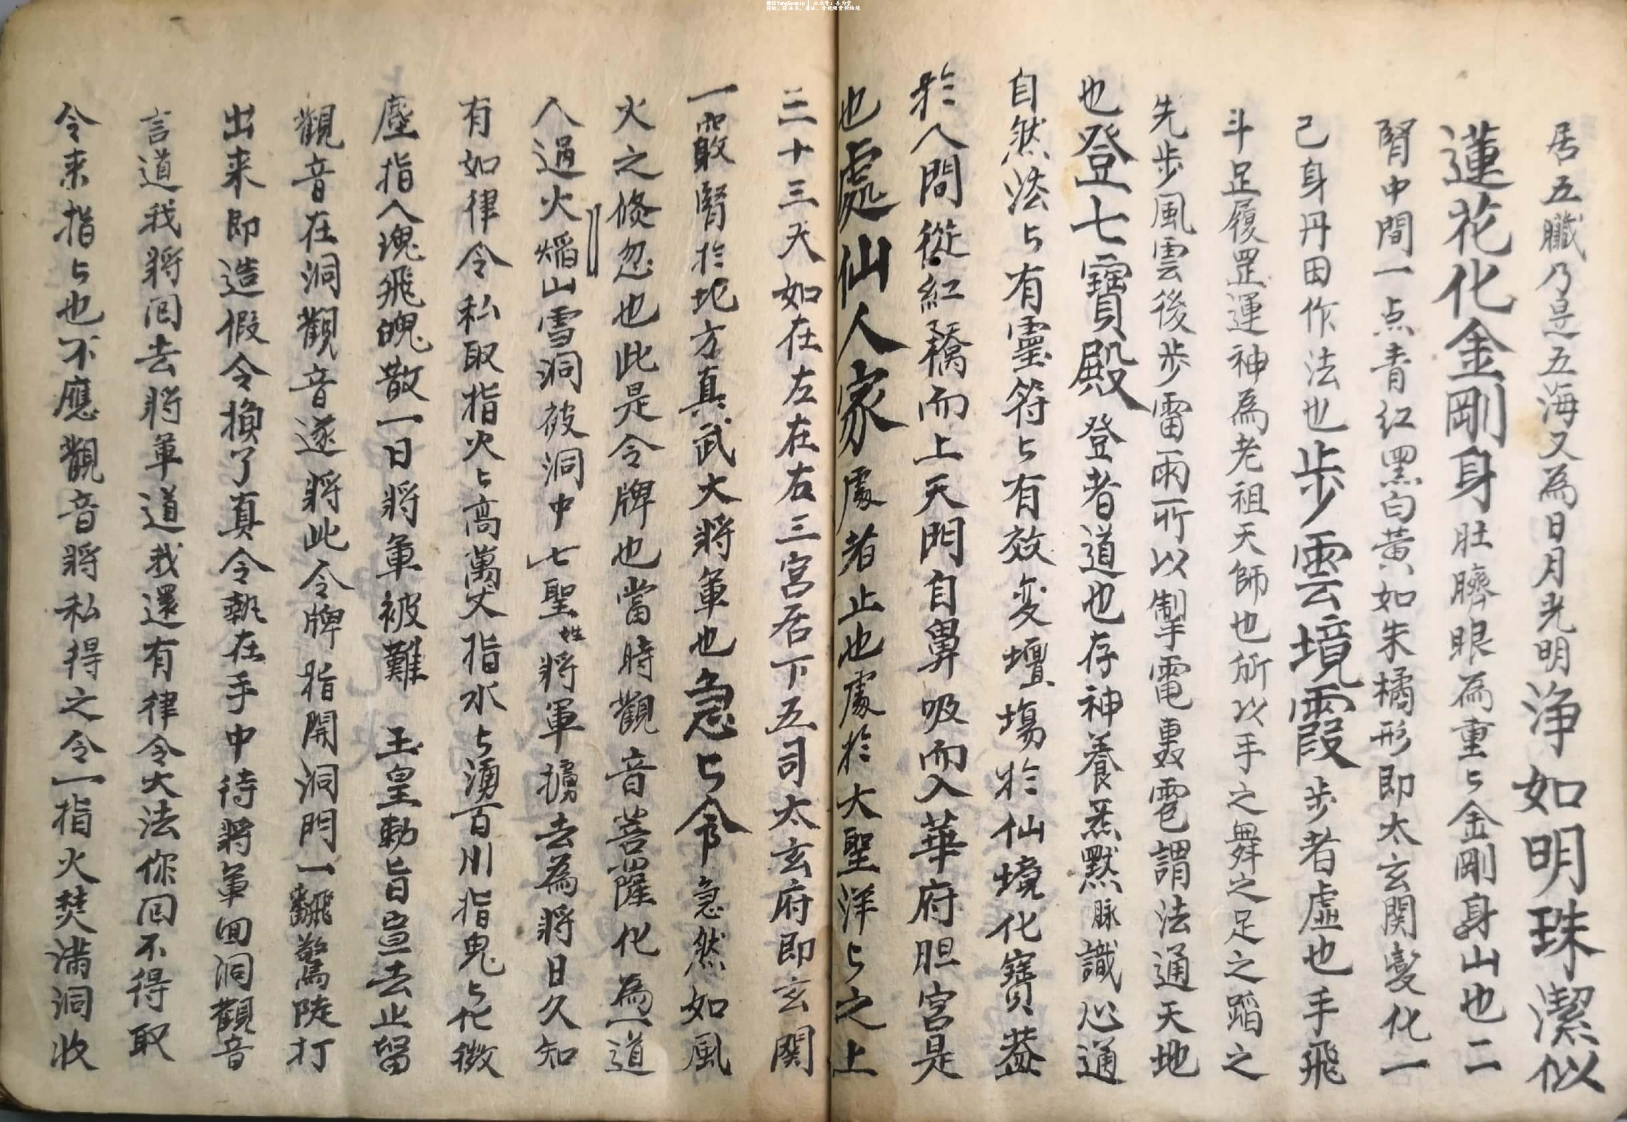 居五臟乃是五海又為日月光明淨如明珠潔似
蓮花化金剛身肚臍眼為重々金剛身山也二
腎中間一点青紅黑白黃如朱橘形即太玄関變化一
己身丹田作法也步雲境霞步者虛也手飛
斗足履罡運神為老祖天師也所以手之舞之足之蹈之
先步風雲後步雷雨所以掣電轟雹謂法通天地
也登七寶殿登者道也存神養炁默脉識心通
自然法々有靈符々有效变壇塲於仙境化寶蓋
於人間從紅橋而上天門自鼻吸而入華府胆宮是
也處仙人家處者止也處於大聖洋々之上
三十三天如在左在右三宮居下五司太玄府即玄関
一竅腎於北方真武大將軍也急々令急然如風
火之倏忽也此是令牌也當時觀音菩薩化為一道
人過火焔山雪洞被洞中七聖姓將軍擄去為將日久知
有如律令私取指火々高萬丈指水々湧百川指鬼々化微
塵指人魂飛魄散一日將軍被難 玉皇勅旨宣去止留
觀音在洞觀音遂將此令牌指開洞門一翻驚陡打
出来即造假令換了真令執在手中待將軍回洞觀音
言道我將回去將軍道我還有律令大法你回不得取
令来指々也不應觀音將私得之令一指火焚满洞收